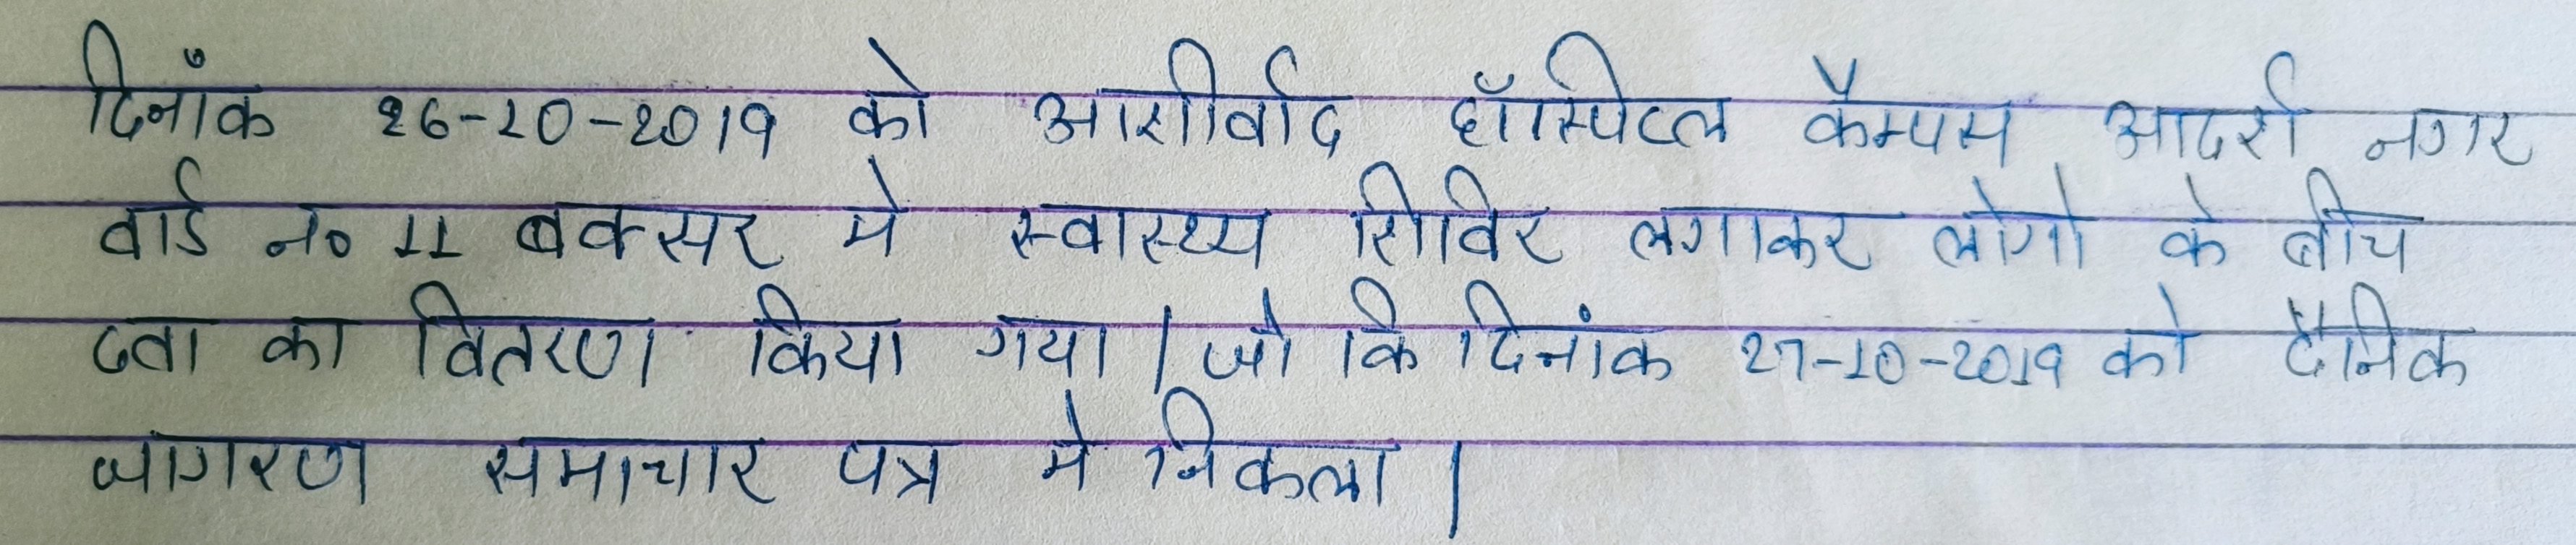 दिनाँक 26-10-2019 को आशीर्वाद हॉस्पिटल कैम्पस आदर्श नगर
वार्ड न० 11 बक्सर मे स्वास्थ्य शिविर लगाकर लोगो के बीच
दवा का वितरण किया गया। जो कि दिनांक 27-10-2019 को दैनिक
जागरण समाचार पत्र मे निकला।